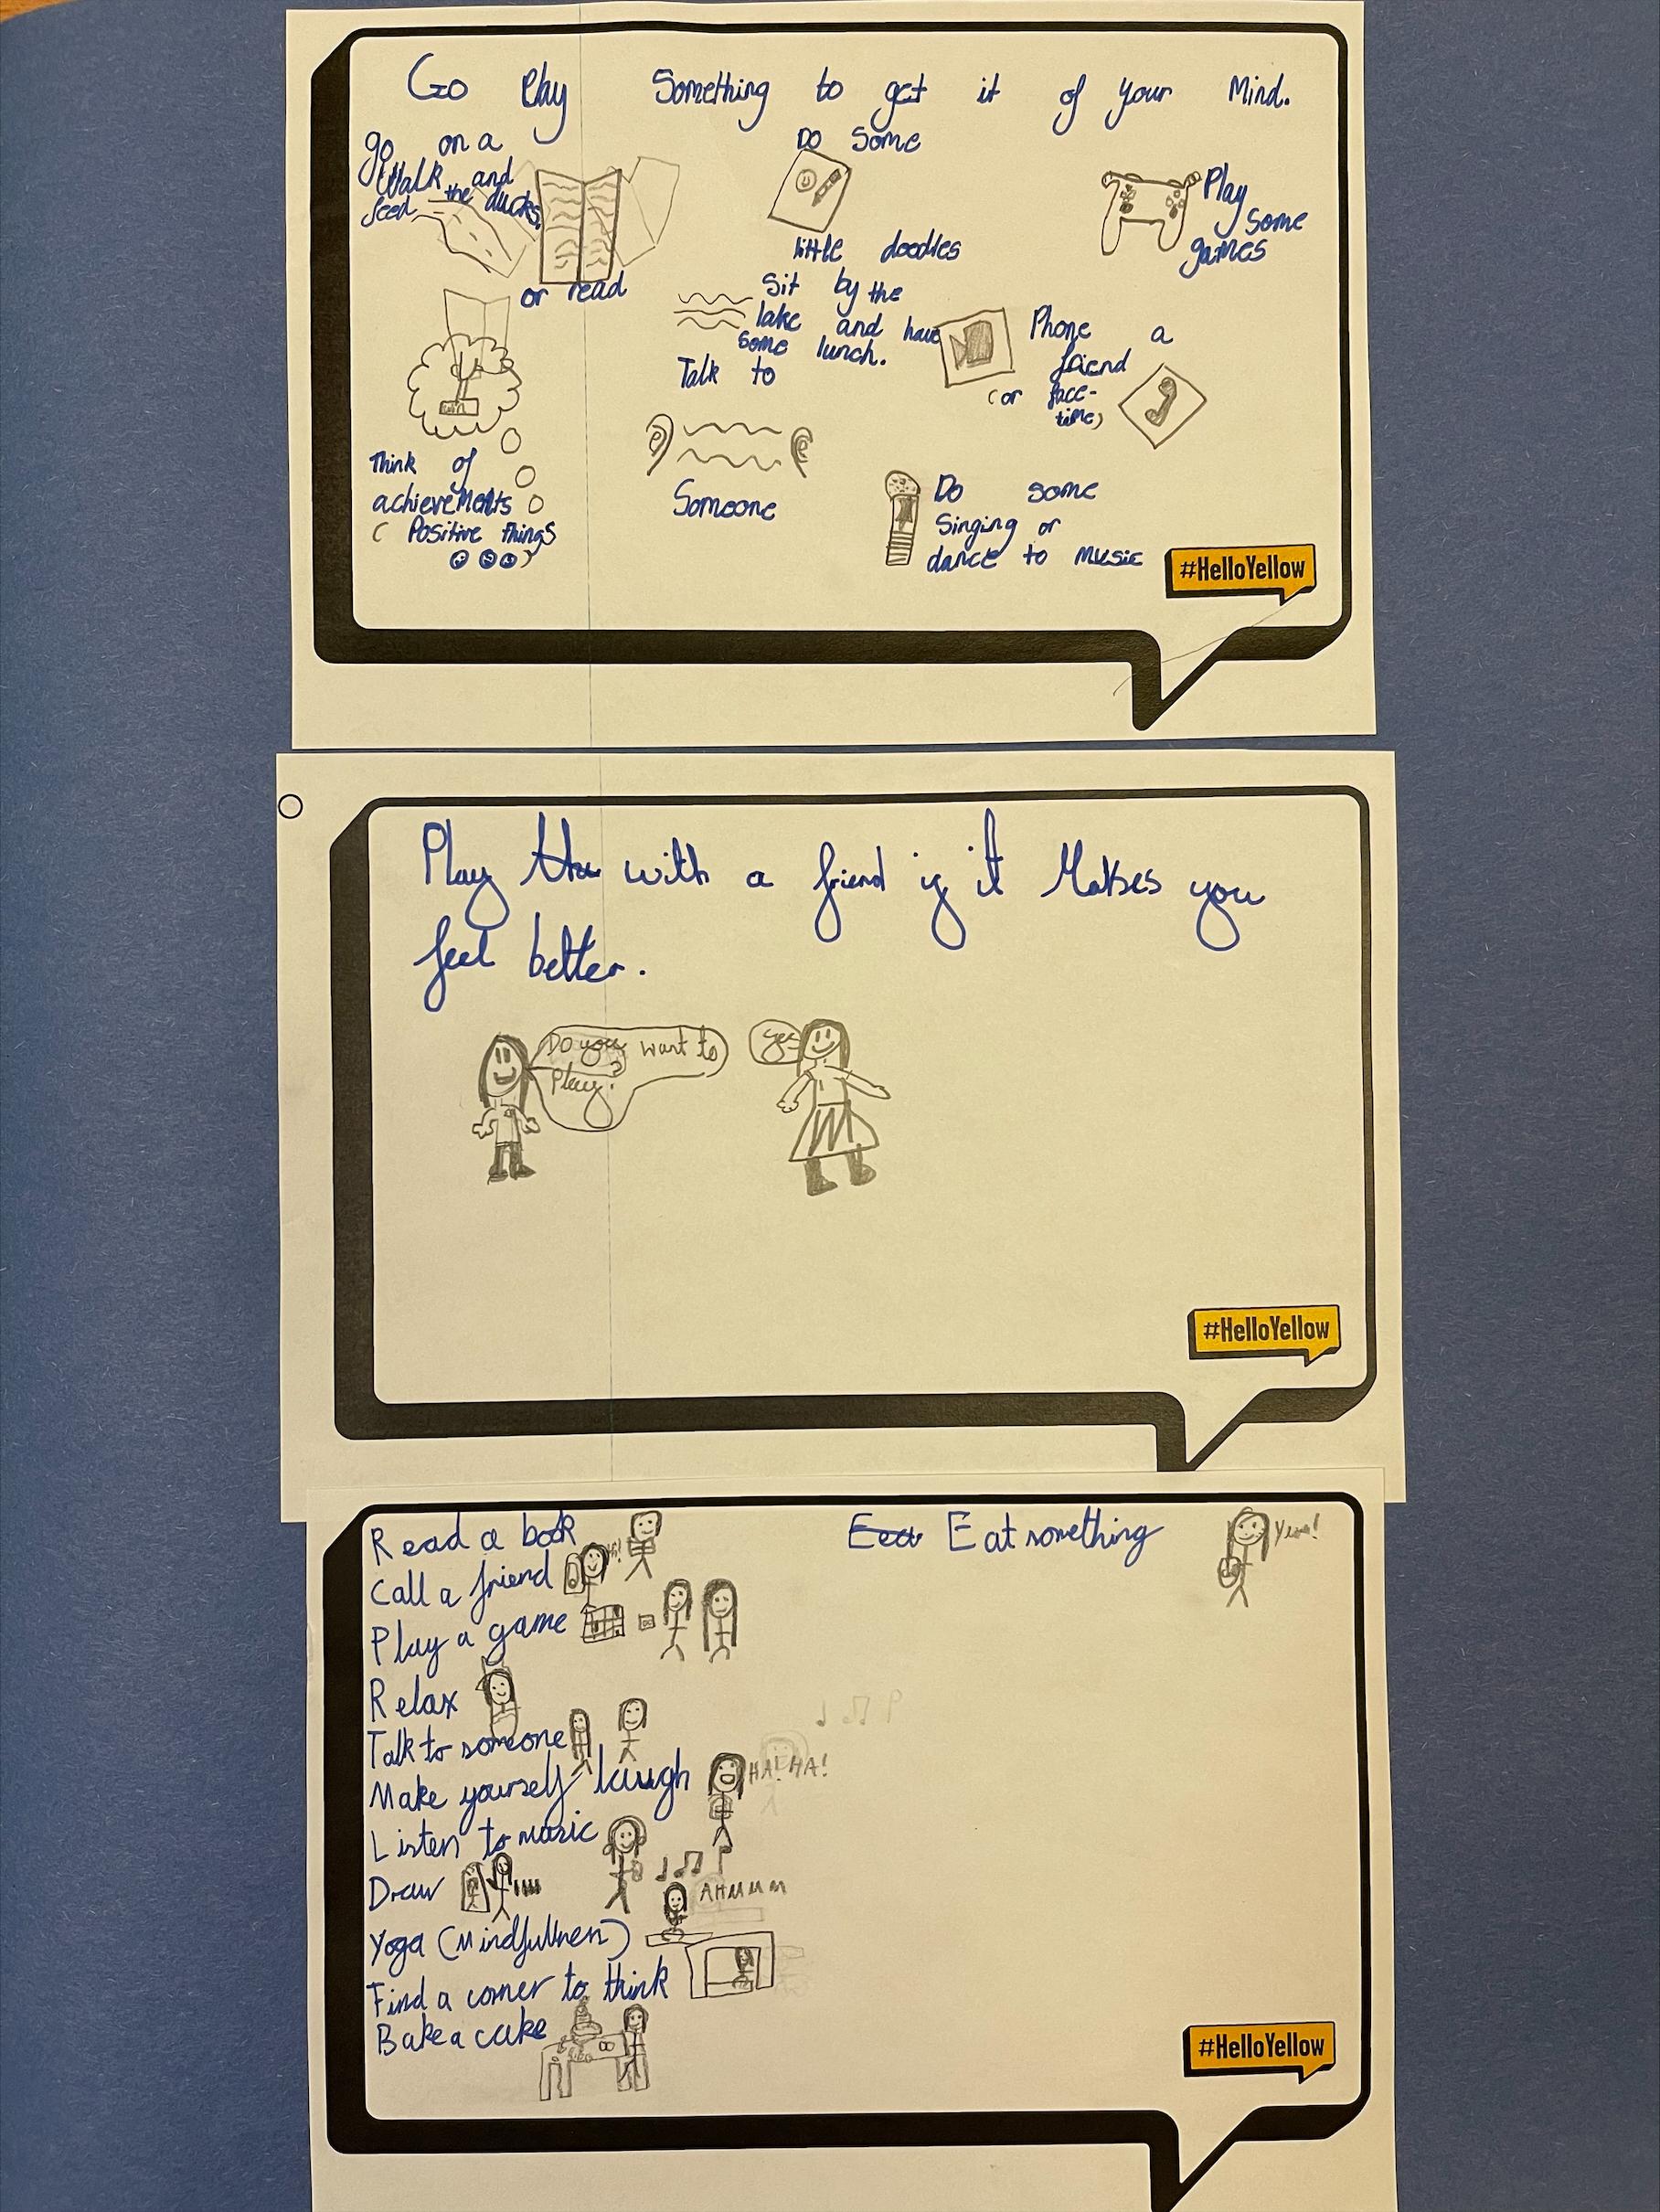 Go Play Something to get it of your Mind.
go on a
Walk and
feed the ducks
or read
Do some
little doodles
Play
some
games
Sit by the
lake and have
some lunch.
Talk to
Someone
Phone a
friend
(or face-
time)
Think of
achievements
(Positive things
)
Do some
Singing or
dance to music
#HelloYellow
Play with a friend if it Makes you
feel better.
Do you want to
Play?
Yes
#HelloYellow
Read a book
Call a friend
Play a game
Relax
Talk to someone
Make yourself laugh
HA! HA!
Listen to music
Draw
AHMMM
Yoga (Mindfullnes)
Find a corner to think
Bake a cake
Eat something
Yum!
#HelloYellow